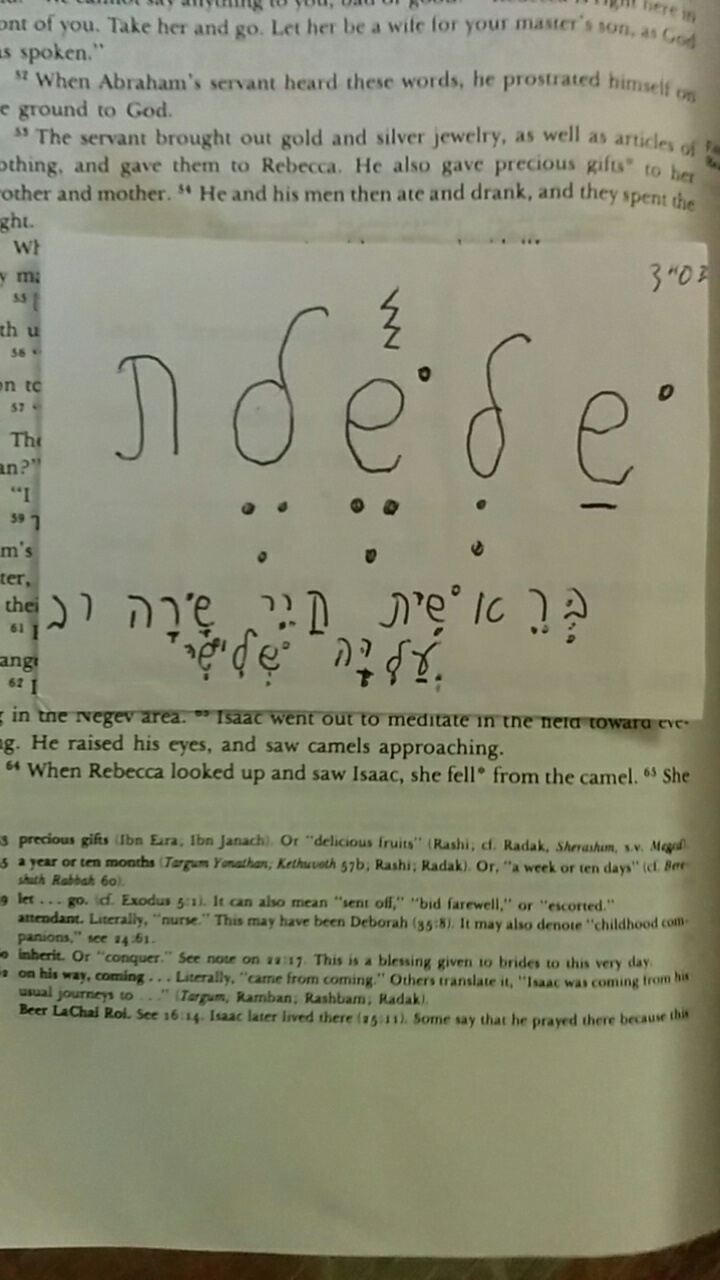 ont of you. Take her and go. Let her be a wife for your master's son, as God
as spoken."
52 When Abraham's servant heard these words, he prostrated himself on
e ground to God.
53 The servant brought out gold and silver jewelry, as well as articles of
othing, and gave them to Rebecca. He also gave precious gifts* to her
rother and mother. 54 He and his men then ate and drank, and they spent the
ght.
בס"ד
בְּרֵאשִׁית חַיֵּי שָׂרָה
עֲלִיָּה שְׁלִישִׁי
in the Negev area. 63 Isaac went out to meditate in the field toward eve-
ng. He raised his eyes, and saw camels approaching.
64 When Rebecca looked up and saw Isaac, she fell* from the camel. 65 She
precious gifts (Ibn Ezra; Ibn Janach). Or "delicious fruits" (Rashi; cf. Radak, Sherashim, s.v. Meged).
a year or ten months (Targum Yonathan; Kethuvoth 57b; Rashi; Radak). Or, "a week or ten days" (cf. Bere-
shith Rabbah 60).
let . . . go. (cf. Exodus 5:1). It can also mean "sent off," "bid farewell," or "escorted."
attendant. Literally, "nurse." This may have been Deborah (35:8). It may also denote "childhood com-
panions," see 24:61.
inherit. Or "conquer." See note on 22:17. This is a blessing given to brides to this very day.
on his way, coming . . . Literally, "came from coming." Others translate it, "Isaac was coming from his
usual journeys to . . ." (Targum; Ramban; Rashbam; Radak).
Beer LaChai Roi. See 16:14. Isaac later lived there (25:11). Some say that he prayed there because this